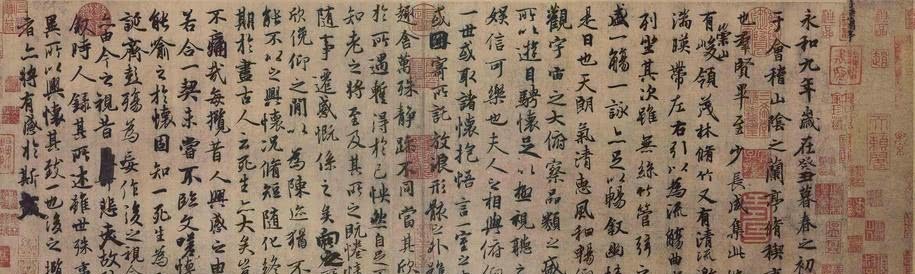 永和九年歲在癸丑暮春之初
于會稽山陰之蘭亭脩稧
也羣賢畢至少長咸集此
有崇山峻領茂林脩竹又有清流激
湍暎帶左右引以為流觴曲
列坐其次雖無絲竹管弦之
盛一觴一詠亦足以暢敘幽情
是日也天朗氣清惠風和暢仰
觀宇宙之大俯察品類之盛
所以遊目騁懷足以極視聽之
娛信可樂也夫人之相與俯仰
一世或取諸懷抱悟言一室之
或因寄所託放浪形骸之外雖
趣舍萬殊靜躁不同當其欣
於所遇蹔得於己怏然自足
知老之將至及其所之既惓情
隨事遷感慨係之矣向之
欣俛仰之間以為陳迹猶不
能不以之興懷況脩短隨化終
期於盡古人云死生亦大矣豈
不痛哉每攬昔人興感之由
若合一契未嘗不臨文嗟悼
能喻之於懷固知一死生為
誕齊彭殤為妄作後之視今
亦由今之視昔悲夫故
敘時人錄其所述雖世殊事
異所以興懷其致一也後之攬
者亦將有感於斯文